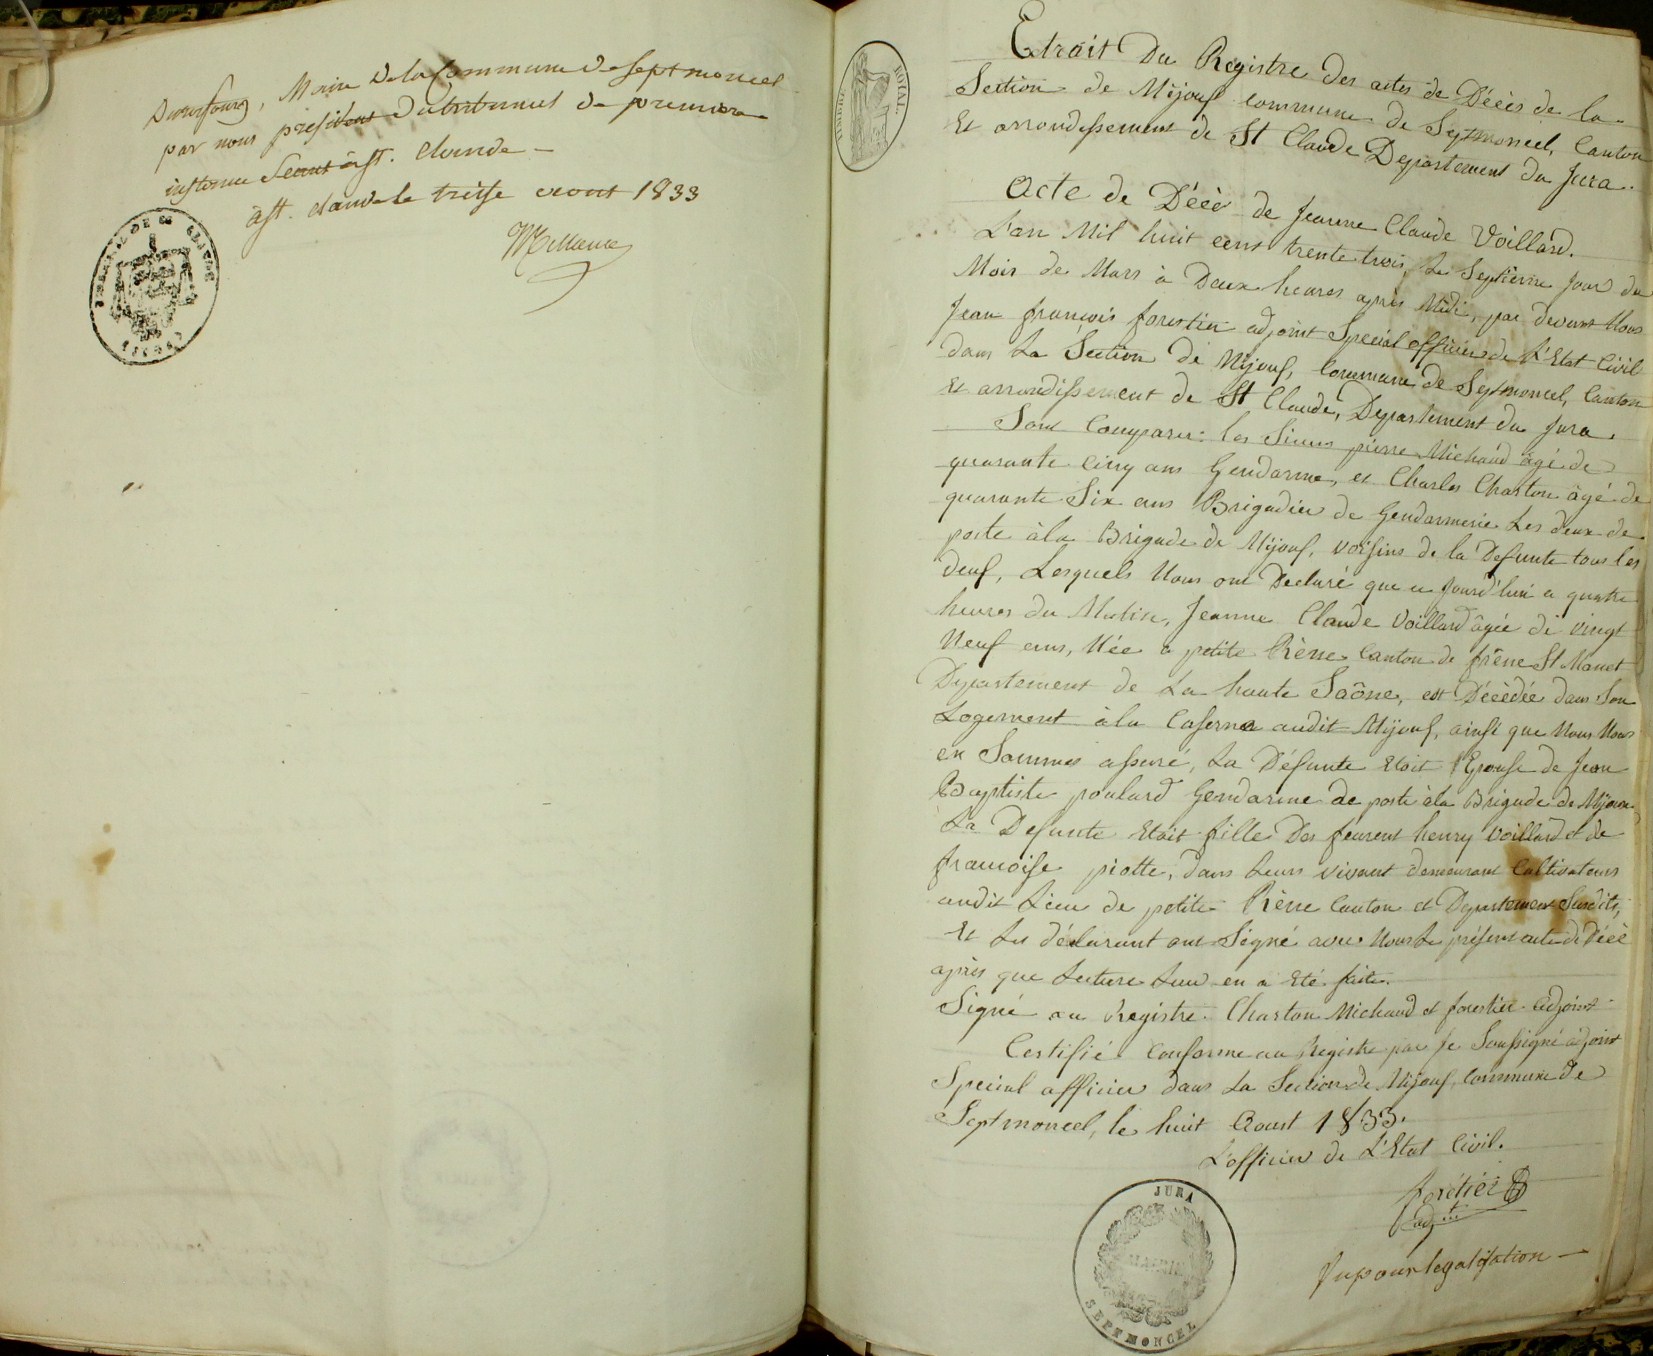 Maire de la Commune de Septmoncel
par nous président du tribunal de première
instance séant à St. Claude
à St. Claude le treise aout 1833
TRIBUNAL DE St CLAUDE
(JURA)
TIMBRE ROYAL
Extrait Du Registre des actes de Décès de la
Section de Mijouf commune de Septmoncel, Canton
Et arrondissement de St Claude Departement du Jura.
Acte de Décè de Jeanne Claude Voillard.
L'an Mil huit cent trente trois, Le Septieme Jour du
Mois de Mars à Deux heures après Midi, par devant Nous
Jean françois forestier adjoint Special officier de L'Etat Civil
dans La Section de Mijouf, Commune de Septmoncel, Canton
Et arrondissement de St Claude, Departement du Jura.
Sont Comparu: les Sieurs pierre Michaud âgé de
quarante cinq ans Gendarme, et Charles Charton âgé de
quarante Six ans Brigadier de Gendarmerie Les deux de
poste à la Brigade de Mijouf, voisins de la Defunte tous les
deuf, Lesquels Nous ont Declaré que ce Jourd'hui a quatre
heures du Matin, Jeanne Claude Voillard âgée de vingt
Neuf ans, Née a petite Rêne Canton de frêne St Mamet
Departement de La haute Saône, est Décédée dans Son
Logement à la Caserne audit Mijouf, ainsi que Nous Nous
en Sommes assuré, La Défunte Etoit l'Epouse de Jean
Baptiste poulard Gendarme de poste à la Brigade de Mijoux
La Defunte Etoit fille Des feurent henry Voillard et de
francoise piotte, dans Leurs vivant demeurant Cultivateurs
audit Lieu de petite Rêne Canton et Departement Susdits,
Et Les déclarant ont Signé avec Nous Le présent acte de Décè
après que Lecture Leur en a Eté faite.
Signé au Registre. Charton Michaud et forestier adjoint
Certifié Conforme au Registre par Je Soussigné adjoint
Special officier dans La Section de Mijouf, Commune de
Septmoncel, le huit Aoust 1833.
L'officier de L'Etat Civil.
foretier
adjt
Vu pour legalisation
JURA
MAIRIE
SEPTMONCEL